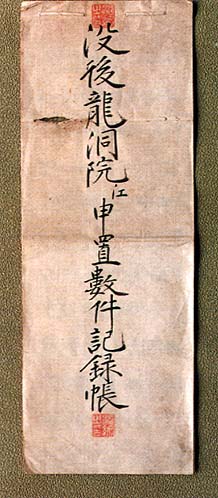 没後龍洞院江申置數件記録帳